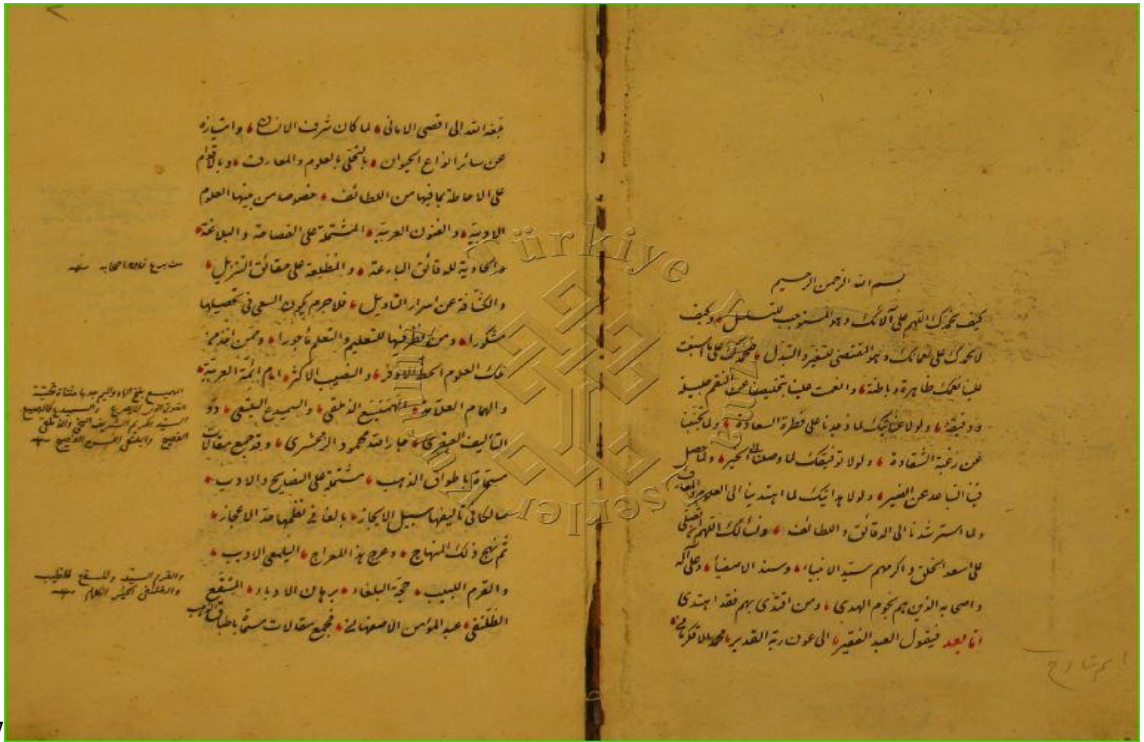 بسم الله الرحمن الرحيم
كيف نحمدك اللهم على آلائك وهو المستوجب للتسلسل وكيف
لا نحمدك على نعمائك وهو المقتضى للتغير والتبدل نحمدك على ما اسبغت
علينا نعمك ظاهرة وباطنة وانعمت علينا بتخليصنا عن النقم جليلة
ودقيقة ولولا عنايتك لما وجدنا على فطرة السعادة ولما تجنبنا
عن رغبة الشقاوة ولولا توفيقك لما وصلنا الى الخير ولما حصل
فينا التباعد عن الضير ولولا هدايتك لما اهتدينا الى العلوم والمعارف
ولما استرشدنا الى الدقائق واللطائف ونسألك اللهم ان تصلى
على اسعد الخلق واكرمهم سيد الانبياء وسند الاصفياء وعلى آله
واصحابه الذين هم نجوم الهدى ومن اقتدى بهم فقد اهتدى
اما بعد فيقول العبد الفقير الى عون ربه القدير محمد
بلغه الله الى اقصى الامانى لما كان شرف الانسان وامتيازه
عن سائر انواع الحيوان بالتحلى بالعلوم والمعارف وبالاقدام
على الاحاطة بما فيها من اللطائف خصوصا من بينها العلوم
الادبية والفنون العربية المشتملة على الفصاحة والبلاغة
والحاوية للدقائق البارعة والمطلعة على حقائق التنزيل
والكشافة عن اسرار التاويل فلا جرم يكون السعى فى تحصيلها
مشكورا ومن فيها للتعليم والتعلم مأجورا وممن اخذ من
تلك العلوم الحظ الاوفر والنصيب الاكثر امام ائمة العربية
والهمام العلامة الهميسع الذلقى والسميدع البلتعى ذو
التأليف العبقرى جار الله محمود الزمخشرى وقد جمع مقالات
مسماة باطواق الذهب مشتملة على النصايح والادب
سالكا فى تاليفها سبيل الايجاز بالغا فى نظمها حد الاعجاز
ثم نهج ذلك المنهاج وعرج هذا المعراج اليلمعى الاديب
والقرم اللبيب حجة البلغاء برهان الادباء المسقع
عبد المؤمن الاصفهانى فجمع مقالات مسماة باطباق الذهب
من برع فاق اصحابه منه
القوى الذى لا يصرع والسميدع
السيد الكريم الشريف السخى والذلقى
الفصيح والبلتعى اللسن الفصيح منه
والقرم السيد والمسقع الخطيب
الكثير الكلام منه
Türkiye